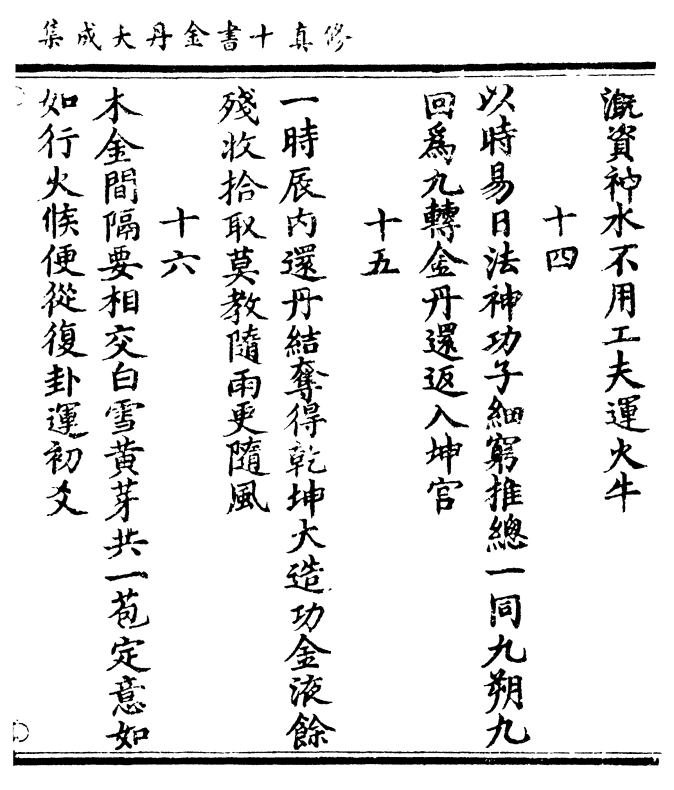 修真十書金丹大成集
溉資神水不用工夫運火牛
十四
以時易日法神功子細窮推總一同九朔九
回爲九轉金丹還返入坤宮
十五
一時辰内還丹結奪得乾坤大造功金液餘
殘收拾取莫教隨雨更隨風
十六
木金間隔要相交白雪黃芽共一苞定意如
如行火候便從復卦運初爻